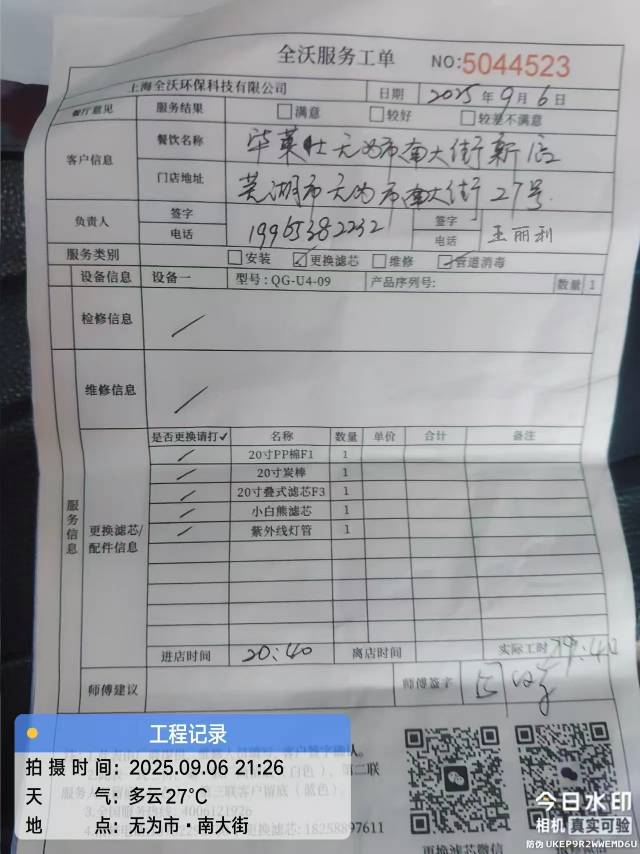 全沃服务工单 NO:5044523
上海全沃环保科技有限公司 日期 2025年9月6日
餐厅意见 服务结果 满意 较好 较差不满意
客户信息 餐饮名称 华莱士无为市南大街新店
门店地址 芜湖市无为市南大街27号
负责人 签字 签字
电话 19965382232 电话 王丽利
服务类别 安装 更换滤芯 维修 管道消毒
设备信息 设备一 型号:QG-U4-09 产品序列号: 数量 1
检修信息
维修信息
是否更换请打✓ 名称 数量 单价 合计 备注
20寸PP棉F1 1
20寸炭棒 1
20寸叠式滤芯F3 1
小白熊滤芯 1
紫外线灯管 1
服务信息
更换滤芯/
配件信息
进店时间 20:40 离店时间 实际工时
师傅建议 师傅签字
工程记录
拍摄时间:2025.09.06 21:26
天气:多云27℃
地点:无为市·南大街
第二联
第三联客户留底(蓝色)。
更换滤芯:18258897611
更换滤芯微信
今日水印
相机 真实可验
防伪 UKEP9R2WWEMD6U